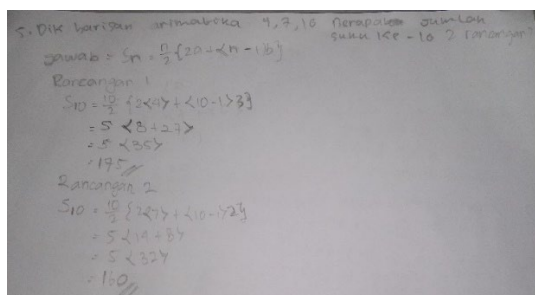 5. Dik barisan aritmatika 4,7,10 berapakah Jumlah
suku ke-10 2 rancangan?
Jawab = Sn = n/2 {2a+<n-1>b}
Rancangan 1
S10 = 10/2 {2<4>+<10-1>3}
= 5 <8+27>
= 5 <35>
= 175 //
Rancangan 2
S10 = 10/2 {2<7>+<10-1>2}
= 5 <14+18>
= 5 <32>
= 160 //